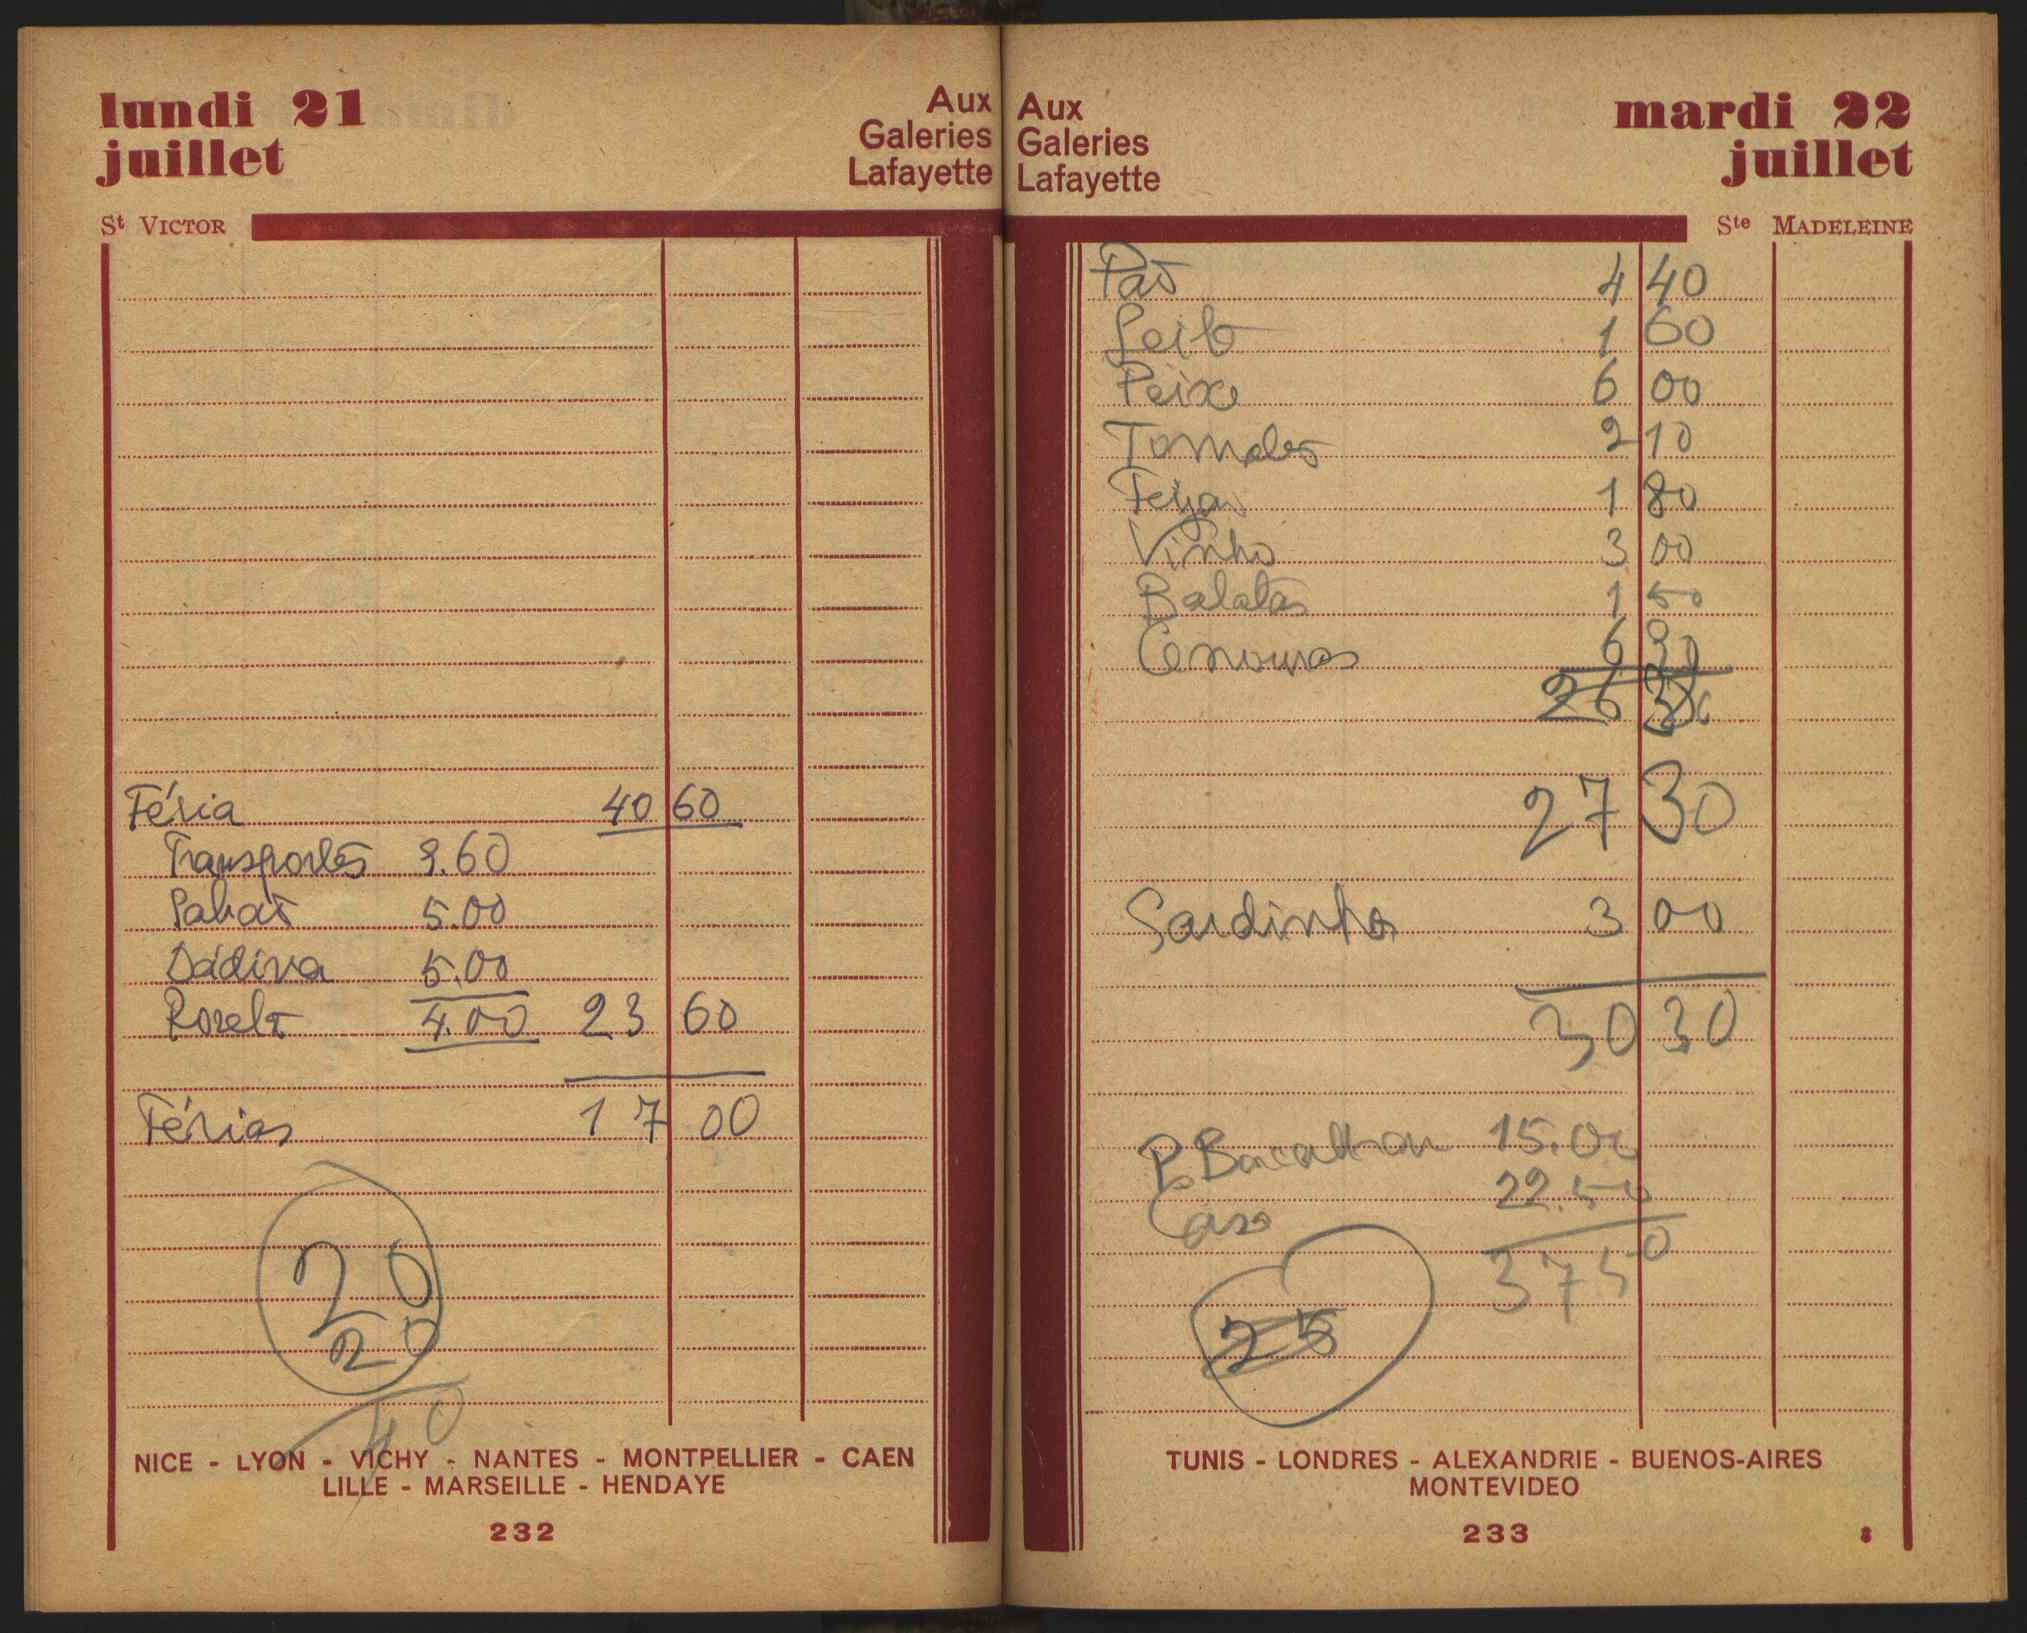 lundi 21
juillet
Aux
Galeries
Lafayette
St VICTOR
Féria 40 60
Transportes 9.60
5.00
Dádiva 5.00
4.00 23 60
Férias 17 00
20
20
40
NICE - LYON - VICHY - NANTES - MONTPELLIER - CAEN
LILLE - MARSEILLE - HENDAYE
232
Aux
Galeries
Lafayette
mardi 22
juillet
Ste MADELEINE
Pão 4 40
Leite 1 60
Peixe 6 00
Tomates 2 10
Feijão 1 80
Vinho 3 00
Batatas 1 50
Cenouras 6 90
26
27 30
Sardinha 3 00
30 30
P. Bacalhau 15.00
22.50
37 50
25
TUNIS - LONDRES - ALEXANDRIE - BUENOS-AIRES
MONTEVIDEO
233
8